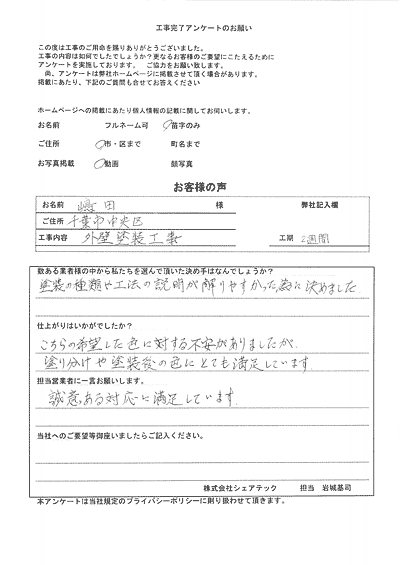 工事完了アンケートのお願い
この度は工事のご用命を賜りありがとうございました。
工事の内容は如何でしたでしょうか？更なるお客様のご要望にこたえるために
アンケートを実施しております。 ご協力をお願い致します。
尚、アンケートは弊社ホームページに掲載させて頂く場合があります。
掲載にあたり、下記のご質問も合せてお答えください。
ホームページへの掲載にあたり個人情報の記載に関してお伺いします。
お名前 フルネーム可 苗字のみ
ご住所 市・区まで 町名まで
お写真掲載 動画 顔写真
お客様の声
お名前 嶋田 様 弊社記入欄
ご住所 千葉市中央区
工事内容 外壁塗装工事 工期 2週間
数ある業者様の中から私たちを選んで頂いた決め手はなんでしょうか？
塗装の種類や工法の説明が解りやすかった為に決めました
仕上がりはいかがでしたか？
こちらの希望した色に対する不安がありましたが、
塗り分けや塗装後の色にとても満足しています。
担当営業者に一言お願いします。
誠意ある対応に満足しています。
当社へのご要望等御座いましたらご記入ください。
株式会社シェアテック 担当 岩城基司
本アンケートは当社規定のプライバシーポリシーに則り扱わせて頂きます。